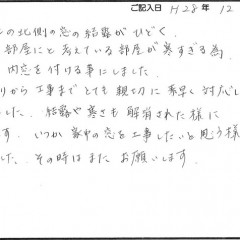 ご記入日 H28年 12
の北側の窓の結露がひどく、
部屋にと考えている部屋が寒すぎる為、
内窓を付ける事にしました。
りから工事までとても親切に素早く対応し
した。結露や寒さも解消された様に
す。いつか家中の窓を工事したいと思う様
した。その時はまたお願いします。